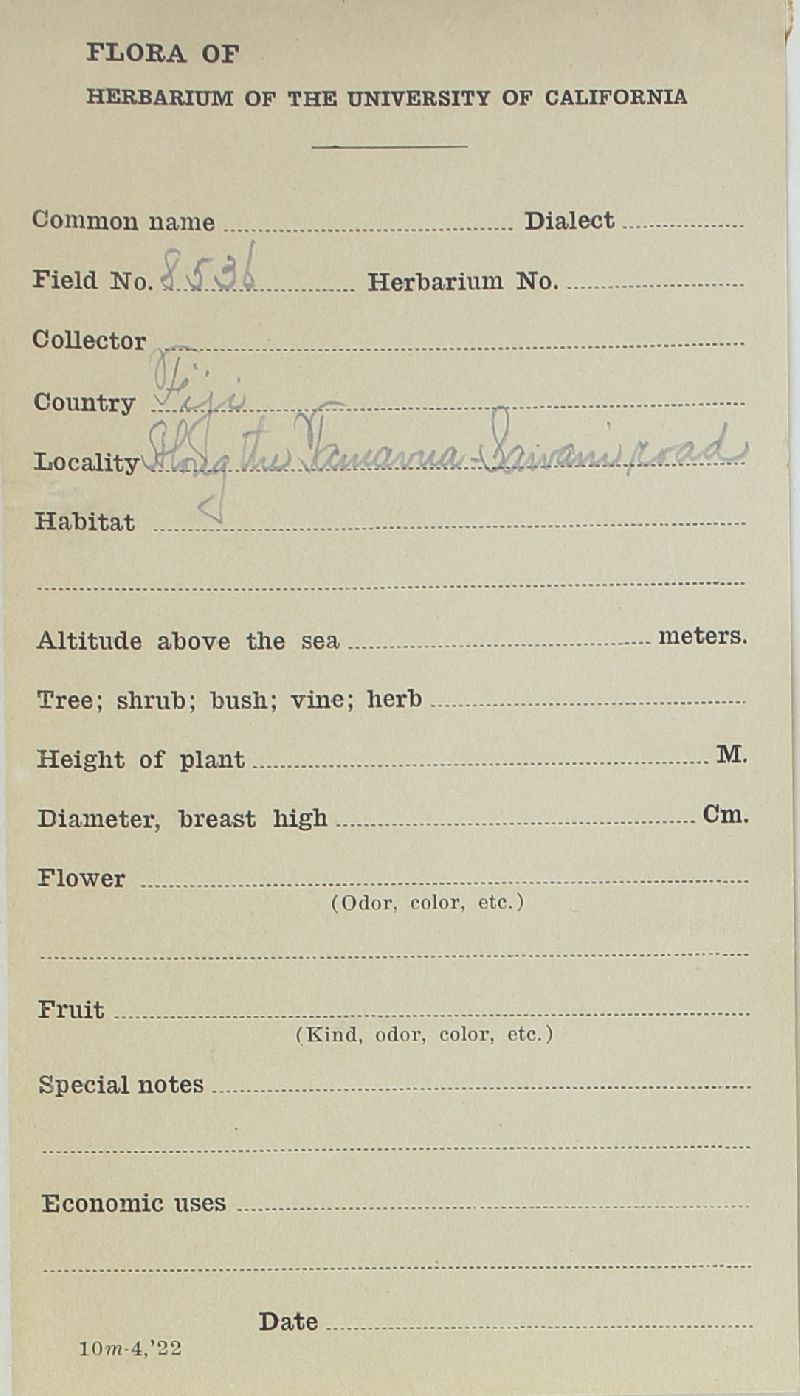 FLORA OF
HERBARIUM OF THE UNIVERSITY OF CALIFORNIA
Common name Dialect
Field No. 8536 Herbarium No.
Collector
Country Fiji
Locality Along the Tamavua-Sawani road
Habitat
Altitude above the sea meters.
Tree; shrub; bush; vine; herb
Height of plant M.
Diameter, breast high Cm.
Flower
(Odor, color, etc.)
Fruit
(Kind, odor, color, etc.)
Special notes
Economic uses
Date
10m-4,'22